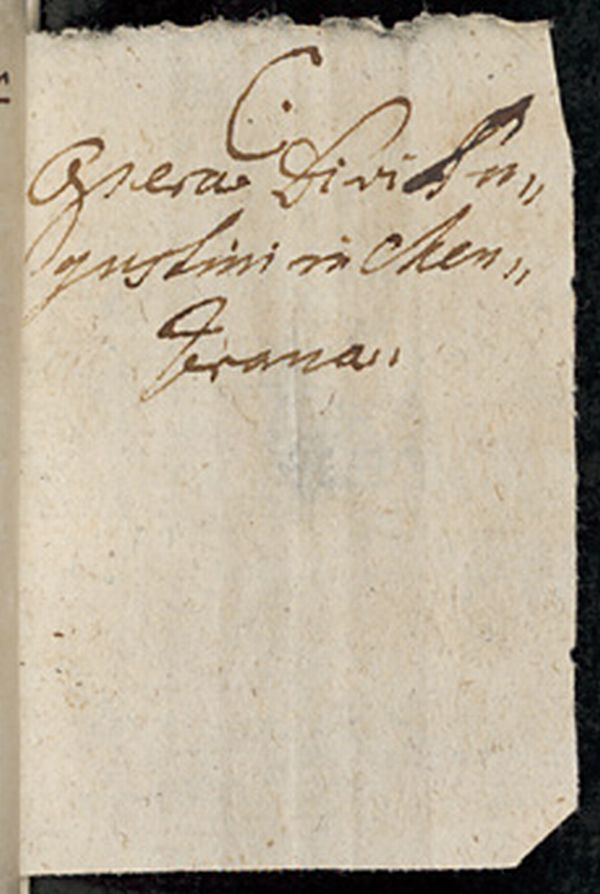 C.
Opera Divi Au„
gustini in Mem„
brana.